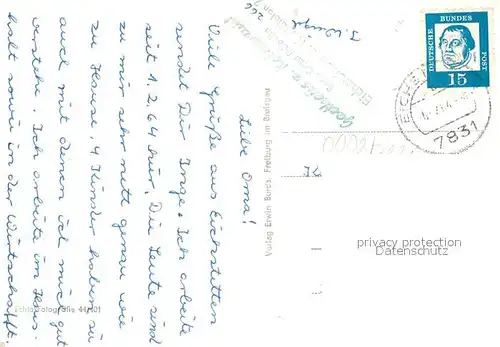 Liebe Oma!
Viele Grüße aus Eichstetten
sendet Dir Inge. Ich arbeite
seit 1.2.64 hier. Die Leute sind
zu mir sehr nett genau wie
zu Hause, 4 Kinder haben sie
auch mit denen ich mich gut
verstehe. Ich arbeite im Haus-
halt sowie in der Wirtschaft.
Verlag Erwin Burch, Freiburg im Breisgau
DEUTSCHE BUNDES POST
15
7831
privacy protection
Datenschutz